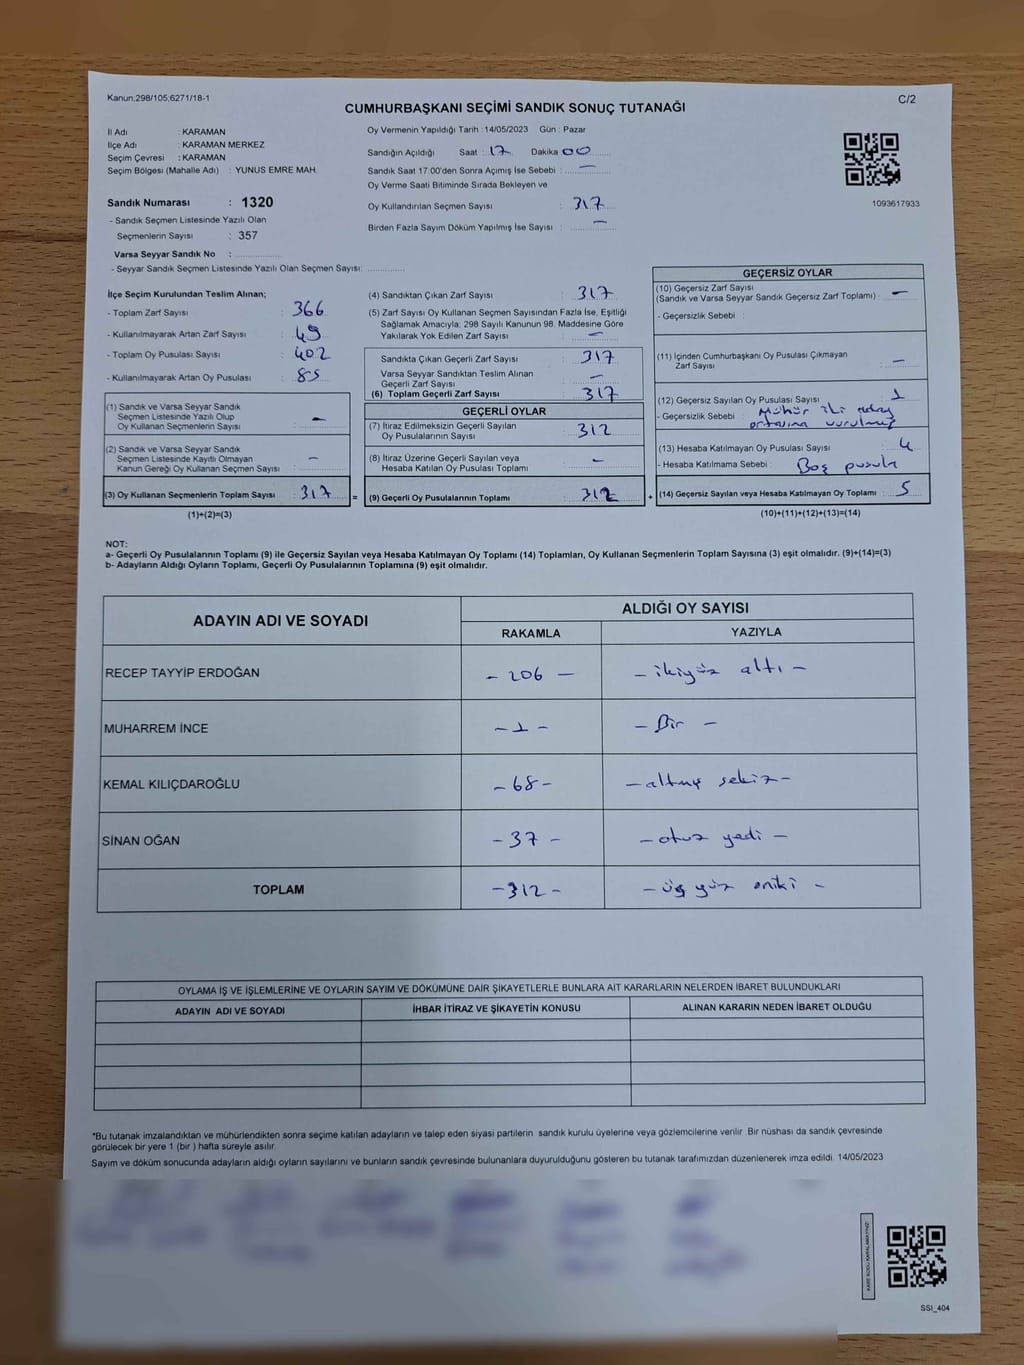 Kanun;298/105;6271/18-1
C/2
CUMHURBAŞKANI SEÇİMİ SANDIK SONUÇ TUTANAĞI
İl Adı : KARAMAN
İlçe Adı : KARAMAN MERKEZ
Seçim Çevresi : KARAMAN
Seçim Bölgesi (Mahalle Adı) : YUNUS EMRE MAH.
Sandık Numarası : 1320
- Sandık Seçmen Listesinde Yazılı Olan
Seçmenlerin Sayısı : 357
Varsa Seyyar Sandık No :
- Seyyar Sandık Seçmen Listesinde Yazılı Olan Seçmen Sayısı:
Oy Vermenin Yapıldığı Tarih : 14/05/2023 Gün : Pazar
Sandığın Açıldığı Saat : 17 Dakika 00
Sandık Saat 17:00'den Sonra Açımış İse Sebebi : —
Oy Verme Saati Bitiminde Sırada Bekleyen ve
Oy Kullandırılan Seçmen Sayısı : 317
Birden Fazla Sayım Döküm Yapılmış İse Sayısı : —
1093617933
İlçe Seçim Kurulundan Teslim Alınan;
- Toplam Zarf Sayısı : 366
- Kullanılmayarak Artan Zarf Sayısı : 49
- Toplam Oy Pusulası Sayısı : 402
- Kullanılmayarak Artan Oy Pusulası : 85
(1) Sandık ve Varsa Seyyar Sandık
Seçmen Listesinde Yazılı Olup
Oy Kullanan Seçmenlerin Sayısı : —
(2) Sandık ve Varsa Seyyar Sandık
Seçmen Listesinde Kayıtlı Olmayan
Kanun Gereği Oy Kullanan Seçmen Sayısı : —
(3) Oy Kullanan Seçmenlerin Toplam Sayısı : 317
(1)+(2)=(3)
=
(4) Sandıktan Çıkan Zarf Sayısı : 317
(5) Zarf Sayısı Oy Kullanan Seçmen Sayısından Fazla İse, Eşitliği
Sağlamak Amacıyla; 298 Sayılı Kanunun 98. Maddesine Göre
Yakılarak Yok Edilen Zarf Sayısı : —
Sandıkta Çıkan Geçerli Zarf Sayısı : 317
Varsa Seyyar Sandıktan Teslim Alınan
Geçerli Zarf Sayısı : —
(6) Toplam Geçerli Zarf Sayısı : 317
GEÇERLİ OYLAR
(7) İtiraz Edilmeksizin Geçerli Sayılan
Oy Pusulalarının Sayısı : 312
(8) İtiraz Üzerine Geçerli Sayılan veya
Hesaba Katılan Oy Pusulası Toplamı : —
(9) Geçerli Oy Pusulalarının Toplamı : 312
+
GEÇERSİZ OYLAR
(10) Geçersiz Zarf Sayısı
(Sandık ve Varsa Seyyar Sandık Geçersiz Zarf Toplamı) : —
- Geçersizlik Sebebi :
(11) İçinden Cumhurbaşkanı Oy Pusulası Çıkmayan
Zarf Sayısı : —
(12) Geçersiz Sayılan Oy Pusulası Sayısı : 1
- Geçersizlik Sebebi : Mühür iki aday
ortasına vurulmuş
(13) Hesaba Katılmayan Oy Pusulası Sayısı : 4
- Hesaba Katılmama Sebebi : Boş pusula
(14) Geçersiz Sayılan veya Hesaba Katılmayan Oy Toplamı : 5
(10)+(11)+(12)+(13)=(14)
NOT:
a- Geçerli Oy Pusulalarının Toplamı (9) ile Geçersiz Sayılan veya Hesaba Katılmayan Oy Toplamı (14) Toplamları, Oy Kullanan Seçmenlerin Toplam Sayısına (3) eşit olmalıdır. (9)+(14)=(3)
b- Adayların Aldığı Oyların Toplamı, Geçerli Oy Pusulalarının Toplamına (9) eşit olmalıdır.
ADAYIN ADI VE SOYADI ALDIĞI OY SAYISI
RAKAMLA YAZIYLA
RECEP TAYYİP ERDOĞAN - 206 — - ikiyüz altı -
MUHARREM İNCE - 1 - - Bir -
KEMAL KILIÇDAROĞLU - 68 - - altmış sekiz -
SİNAN OĞAN - 37 - - otuz yedi -
TOPLAM - 312 - - üç yüz oniki -
OYLAMA İŞ VE İŞLEMLERİNE VE OYLARIN SAYIM VE DÖKÜMÜNE DAİR ŞİKAYETLERLE BUNLARA AİT KARARLARIN NELERDEN İBARET BULUNDUKLARI
ADAYIN ADI VE SOYADI İHBAR İTİRAZ VE ŞİKAYETİN KONUSU ALINAN KARARIN NEDEN İBARET OLDUĞU
*Bu tutanak imzalandıktan ve mühürlendikten sonra seçime katılan adayların ve talep eden siyasi partilerin sandık kurulu üyelerine veya gözlemcilerine verilir. Bir nüshası da sandık çevresinde
görülecek bir yere 1 (bir ) hafta süreyle asılır.
Sayım ve döküm sonucunda adayların aldığı oyların sayılarını ve bunların sandık çevresinde bulunanlara duyurulduğunu gösteren bu tutanak tarafımızdan düzenlenerek imza edildi. 14/05/2023
KARE KODU KARALAMAYINIZ!
SSI_404